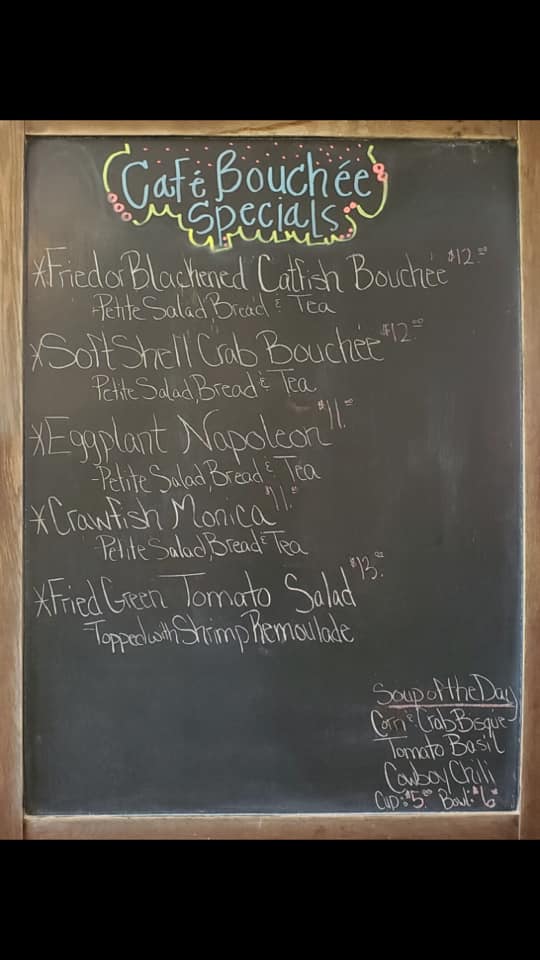 Café Bouchée
Specials
*Fried or Blackened Catfish Bouchée $12.00
-Petite Salad, Bread & Tea
*Soft Shell Crab Bouchée $12.00
Petite Salad, Bread & Tea
*Eggplant Napoleon $11.00
-Petite Salad, Bread & Tea
*Crawfish Monica $11.00
-Petite Salad, Bread & Tea
*Fried Green Tomato Salad $13.00
-Topped with Shrimp Remoulade
Soup of the Day
Corn & Crab Bisque
Tomato Basil
Cowboy Chili
Cup: $5.00 Bowl: $6.00